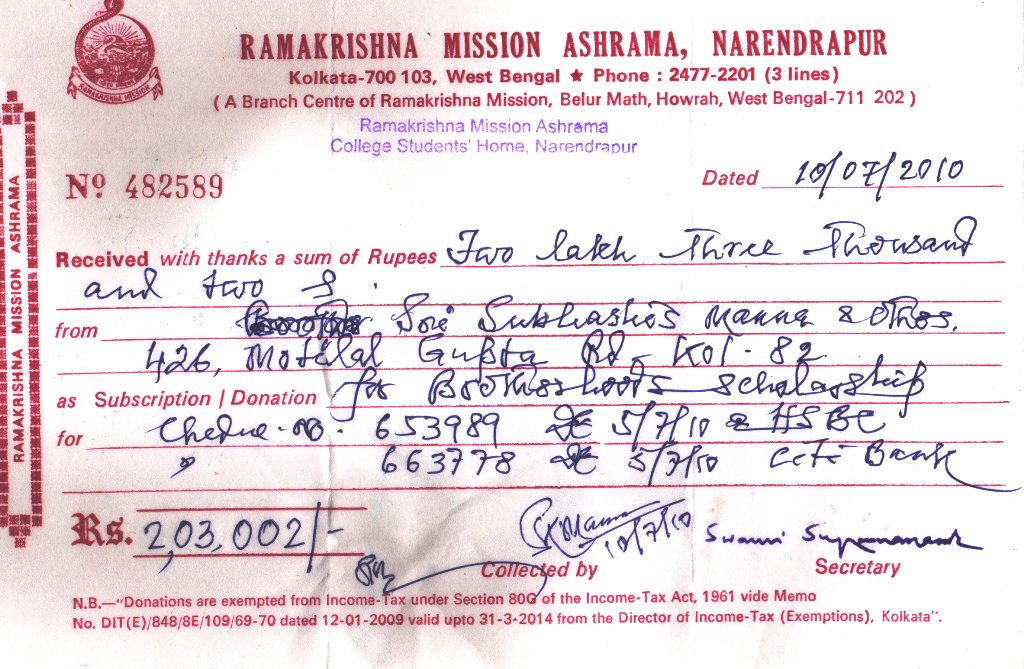 RAMAKRISHNA MISSION ASHRAMA, NARENDRAPUR
Kolkata-700 103, West Bengal ★ Phone : 2477-2201 (3 lines)
( A Branch Centre of Ramakrishna Mission, Belur Math, Howrah, West Bengal-711 202 )
Ramakrishna Mission Ashrama
College Students' Home, Narendrapur
RAMAKRISHNA MISSION
RAMAKRISHNA MISSION ASHRAMA
Nº 482589
Dated 10/07/2010
Received with thanks a sum of Rupees Two lakh Three Thousand
and two
from Sri Subhashis Manna & Others.
426, Motilal Gupta Rd - Kol - 82
as Subscription / Donation for Brotherhood scholarship
for Cheque no. 653989 Dt 5/7/10 HSBC
" 663778 Dt 5/7/10 Citi Bank
Rs. 2,03,002/-
SKManna 10/7/10
Collected by
Secretary
N.B.—"Donations are exempted from Income-Tax under Section 80G of the Income-Tax Act, 1961 vide Memo
No. DIT(E)/848/8E/109/69-70 dated 12-01-2009 valid upto 31-3-2014 from the Director of Income-Tax (Exemptions), Kolkata".